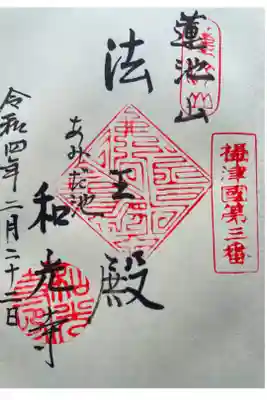 攝津國第三番
蓮池山
法王殿
あみだ池
和光寺
令和四年二月二十二日